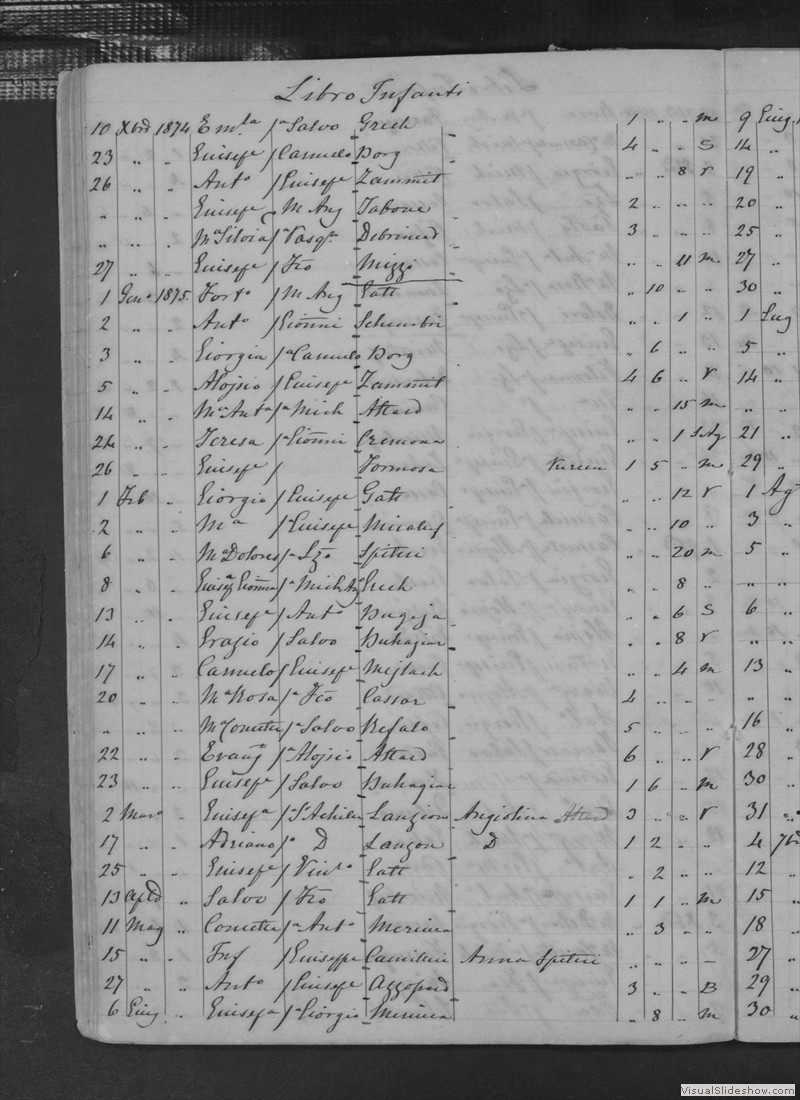 Libro Infanti
10 Xbre 1874 Em.la / a Salvo Grech 1 „ „ m 9 Giug
23 „ „ Giusepe / Carmelo Borg 4 „ „ S 14 „
26 „ „ Anto / Giusepe Zammit „ „ 8 V 19 „
„ „ „ Giusepe / M Ang Tabone 2 „ „ „ 20 „
„ „ „ Ma Silvia / a Pasqe 3 „ „ „ 25 „
27 „ „ Giusepe / Fco Mizzi „ „ 11 m 27 „
1 Geno 1875 Forto / M Ang Gatt „ 10 „ „ 30 „
2 „ „ Anto / Gionni Schembri „ „ 1 „ 1 Lug
3 „ „ Giorgia / a Carmelo Borg „ 6 „ „ 5 „
5 „ „ Alojsio / Giusepe Zammit 4 6 „ V 14 „
14 „ „ Ma Anta / a Mich Attard „ „ 15 m „ „
24 „ „ Teresa / a Gionni Cremona „ „ 1 S Ag 21 „
26 „ „ Giusepe / Formosa 1 5 „ m 29 „
1 Feb „ Giorgio / Giusepe Gatt „ „ 12 V 1 Ag
2 „ „ Ma / a Giusepe Micalef „ „ 10 „ 3 „
6 „ „ Ma Dolores / a Lzo Spiteri „ „ 20 m 5 „
8 „ „ Giusa Gionna / a Mich An Grech „ „ 8 „ „ „
13 „ „ Giusepe / Anto Bugeja „ „ 6 S 6 „
14 „ „ Grazio / Salvo Buhagiar „ „ 8 V „ „
17 „ „ Carmelo / Giusepe Mejlach „ „ 4 m 13 „
20 „ „ Ma Rosa / a Fco Cassar 4 „ „ „ „ „
„ „ „ Ma Concetta / a Salvo Refalo 5 „ „ „ 16 „
22 „ „ Evang / a Alojsio Attard 6 „ „ V 28 „
23 „ „ Giusepe / Salvo Buhagiar 1 6 „ m 30 „
2 Maro „ Giusepa / a Achille Lanzion Angiolina Attard 3 „ „ V 31 „
17 „ „ Adriano / o D Lanzon D 1 2 „ „ 4 7bre
25 „ „ Giusepe / Vinto Gatt „ 2 „ „ 12 „
13 Aple „ Salvo / Fco Gatt 1 1 „ m 15 „
11 Mag „ Concetta / a Anto Mercieca „ 3 „ „ 18 „
15 „ „ Inf / Giuseppe Camilleri Anna Spiteri „ „ „ – 27 „
27 „ „ Anto / Giusepe Azzopard 3 „ „ B 29 „
6 Giug „ Giusepa / a Giorgio Mercieca „ 8 „ m 30 „
VisualSlideshow.com